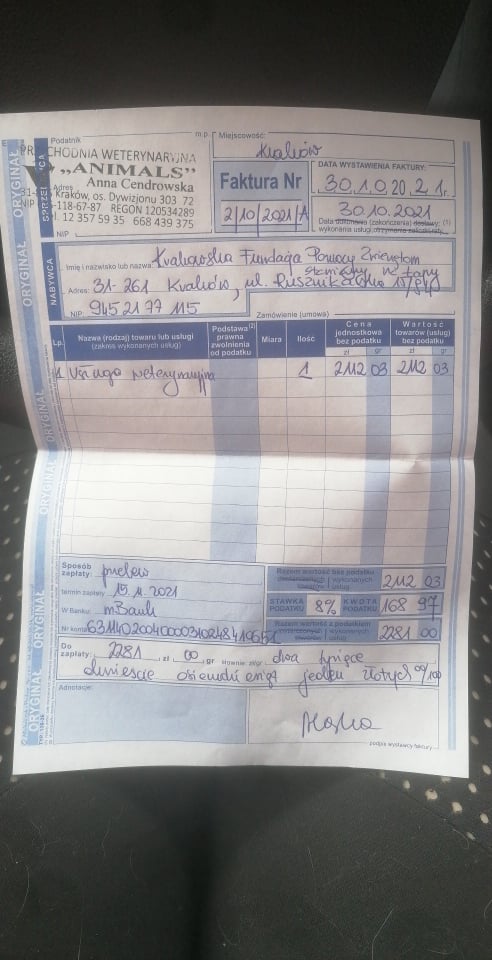 ORYGINAŁ
SPRZEDAWCA
Podatnik
m.p.
Miejscowość:
Kraków
PRZYCHODNIA WETERYNARYJNA
„ANIMALS”
Anna Cendrowska
Adres
Kraków, os. Dywizjonu 303 72
-118-67-87 REGON 120534289
12 357 59 35 668 439 375
NIP
Faktura Nr
2/10/2021/A
DATA WYSTAWIENIA FAKTURY:
30.10.2021r.
30.10.2021
Data dokonania (zakończenia) dostawy: (1)
wykonania usług; otrzymania zaliczki
NABYWCA
Imię i nazwisko lub nazwa: Krakowska Fundacja Pomocy Zwierzętom
stańmy na łapy
Adres: 31-261 Kraków, ul.
NIP: 945 21 77 115
Zamówienie (umowa)
Lp.
Nazwa (rodzaj) towaru lub usługi
(zakres wykonanych usług)
Podstawa (2)
prawna
zwolnienia
od podatku
Miara
Ilość
Cena
jednostkowa
bez podatku
zł gr
Wartość
towarów (usług)
bez podatku
zł gr
1 Usługa weterynaryjna 1 2112 03 2112 03
Sposób
zapłaty: przelew
termin zapłaty 2021
W Banku: mBank
Nr konta
Razem wartość bez podatku
dostarczonych towarów wykonanych usług
2112 03
STAWKA PODATKU 8% KWOTA PODATKU 168 97
Razem wartość z podatkiem
dostarczonych towarów wykonanych usług
2281 00
Do
zapłaty: 2281 zł 00 gr słownie: zł/gr dwa tysiące
dwieście osiemdziesiąt jeden złotych 00/100
Adnotacje:
podpis wystawcy faktury